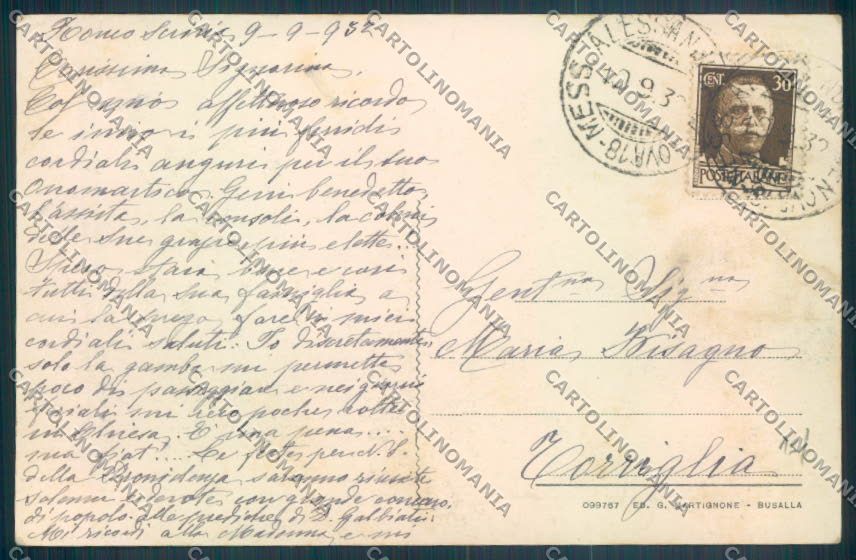 Ronco Scrivia 9-9-932
Carissima Signorina,
Coi più affettuoso ricordo
Le invio i più fervidi
cordiali auguri per il suo
Onomastico. Gesù benedetto
l'assista, la consoli, la colmi
delle Sue grazie più elette...
Spero starà bene e così
tutti della sua famiglia a
cui la prego fare i miei
cordiali saluti. Io discretamente
solo la gamba mi permette
poco di passeggiare e nei giorni
feriali mi reco poche volte
in Chiesa. È una pena....
ma fiat!... Le feste per N. S.
della Provvidenza saranno riuscite
solenni con grande concorso
di popolo alle prediche di D. Galbiati.
Mi ricordi alla Madonna e mi
ALESSAN
9.9.3
MESS
OVA 18
CENT. 30
POSTE ITALIANE
Gent.ma Sig.na
Maria Bisagno
Torriglia
099767 ED. G. BARTIGNONE - BUSALLA
CARTOLINOMANIA